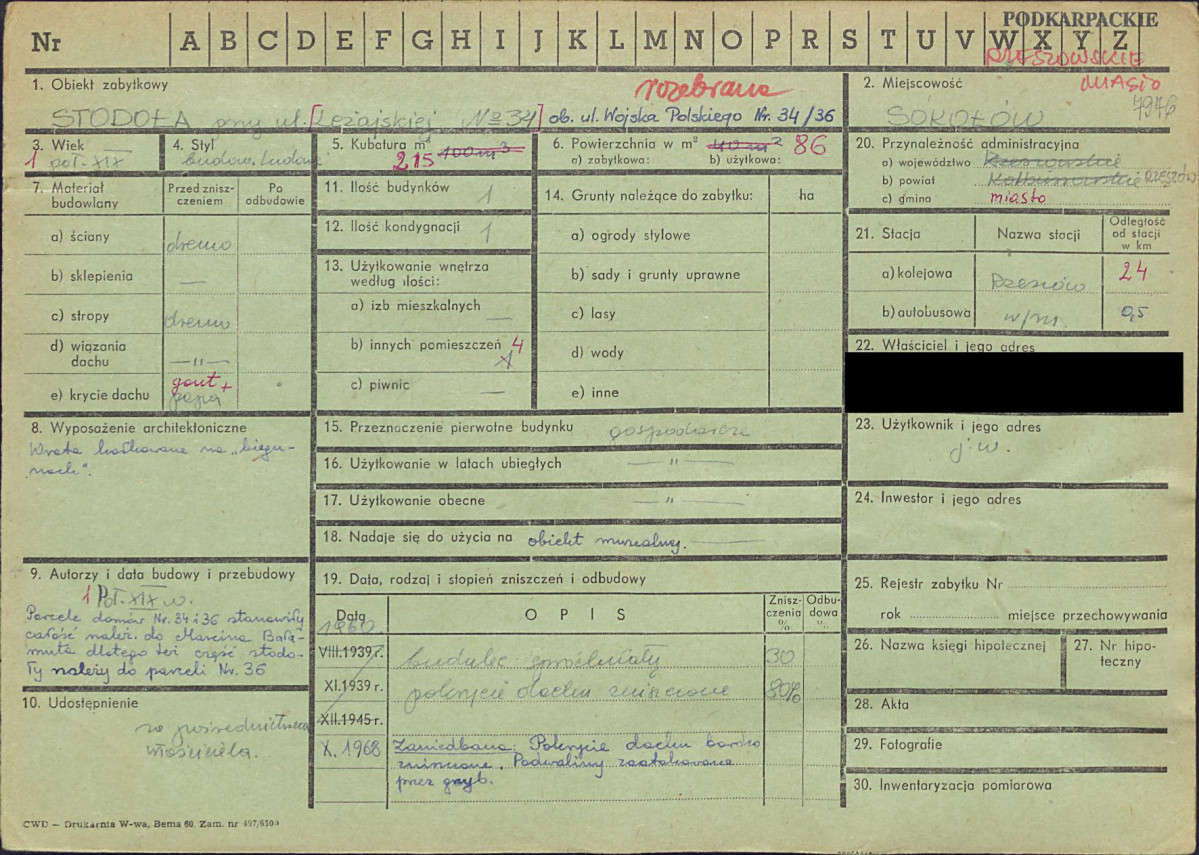 PODKARPACKIE
Nr A B C D E F G H I J K L M N O P R S T U V W X Y Z
RZESZOWSKIE
MIASTO
1. Obiekt zabytkowy
rozebrana
STODOŁA przy ul. [Leżajskiej Nº 34] ob. ul. Wojska Polskiego Nr. 34/36
2. Miejscowość
SOKOŁÓW
3. Wiek
1 poł. XIX
4. Styl
budow. ludowe
5. Kubatura m³
215 400 m³
6. Powierzchnia w m²
a) zabytkowa:
b) użytkowa:
40 m² 86
20. Przynależność administracyjna
a) województwo Rzeszowskie
b) powiat Kolbuszowskie RZESZÓW
c) gmina miasto
7. Materiał budowlany
Przed znisz-
czeniem
Po
odbudowie
a) ściany drewno
b) sklepienia —
c) stropy drewno
d) wiązania
dachu —"—
e) krycie dachu gont + papa
11. Ilość budynków 1
12. Ilość kondygnacji 1
13. Użytkowanie wnętrza
według ilości:
a) izb mieszkalnych —
b) innych pomieszczeń 4
c) piwnic —
14. Grunty należące do zabytku: ha
a) ogrody stylowe
b) sady i grunty uprawne
c) lasy
d) wody
e) inne
21. Stacja
Nazwa stacji
Odległość
od stacji
w km
a) kolejowa Rzeszów 24
b) autobusowa w/m. 0,5
22. Właściciel i jego adres
23. Użytkownik i jego adres
j.w.
24. Inwestor i jego adres
8. Wyposażenie architektoniczne
Wrota kołkowane na „biegu-
nach".
15. Przeznaczenie pierwotne budynku gospodarcze
16. Użytkowanie w latach ubiegłych —"—
17. Użytkowanie obecne —"—
18. Nadaje się do użycia na obiekt muzealny.
9. Autorzy i data budowy i przebudowy
1 Poł. XIX w.
Parcele domów Nr. 34 i 36 stanowiły
całość należ. do Marcina Bała-
muta dlatego też część stodo-
ły należy do parceli Nr. 36
10. Udostępnienie
za pośrednictwem
właściciela.
19. Data, rodzaj i stopień zniszczeń i odbudowy
Data
OPIS
Znisz-
czenia
%
Odbu-
dowa
%
1960
VIII.1939 r. budulec spróchniały 30
XI.1939 r. pokrycie dachu zniszczone 80%
XII.1945 r.
X. 1968 Zaniedbana. Pokrycie dachu bardzo
zniszczone. Podwaliny zaatakowane
przez grzyb.
25. Rejestr zabytku Nr
rok miejsce przechowywania
26. Nazwa księgi hipotecznej
27. Nr hipo-
teczny
28. Akta
29. Fotografie
30. Inwentaryzacja pomiarowa
CWD — Drukarnia W-wa, Bema 60. Zam. nr 497/6500